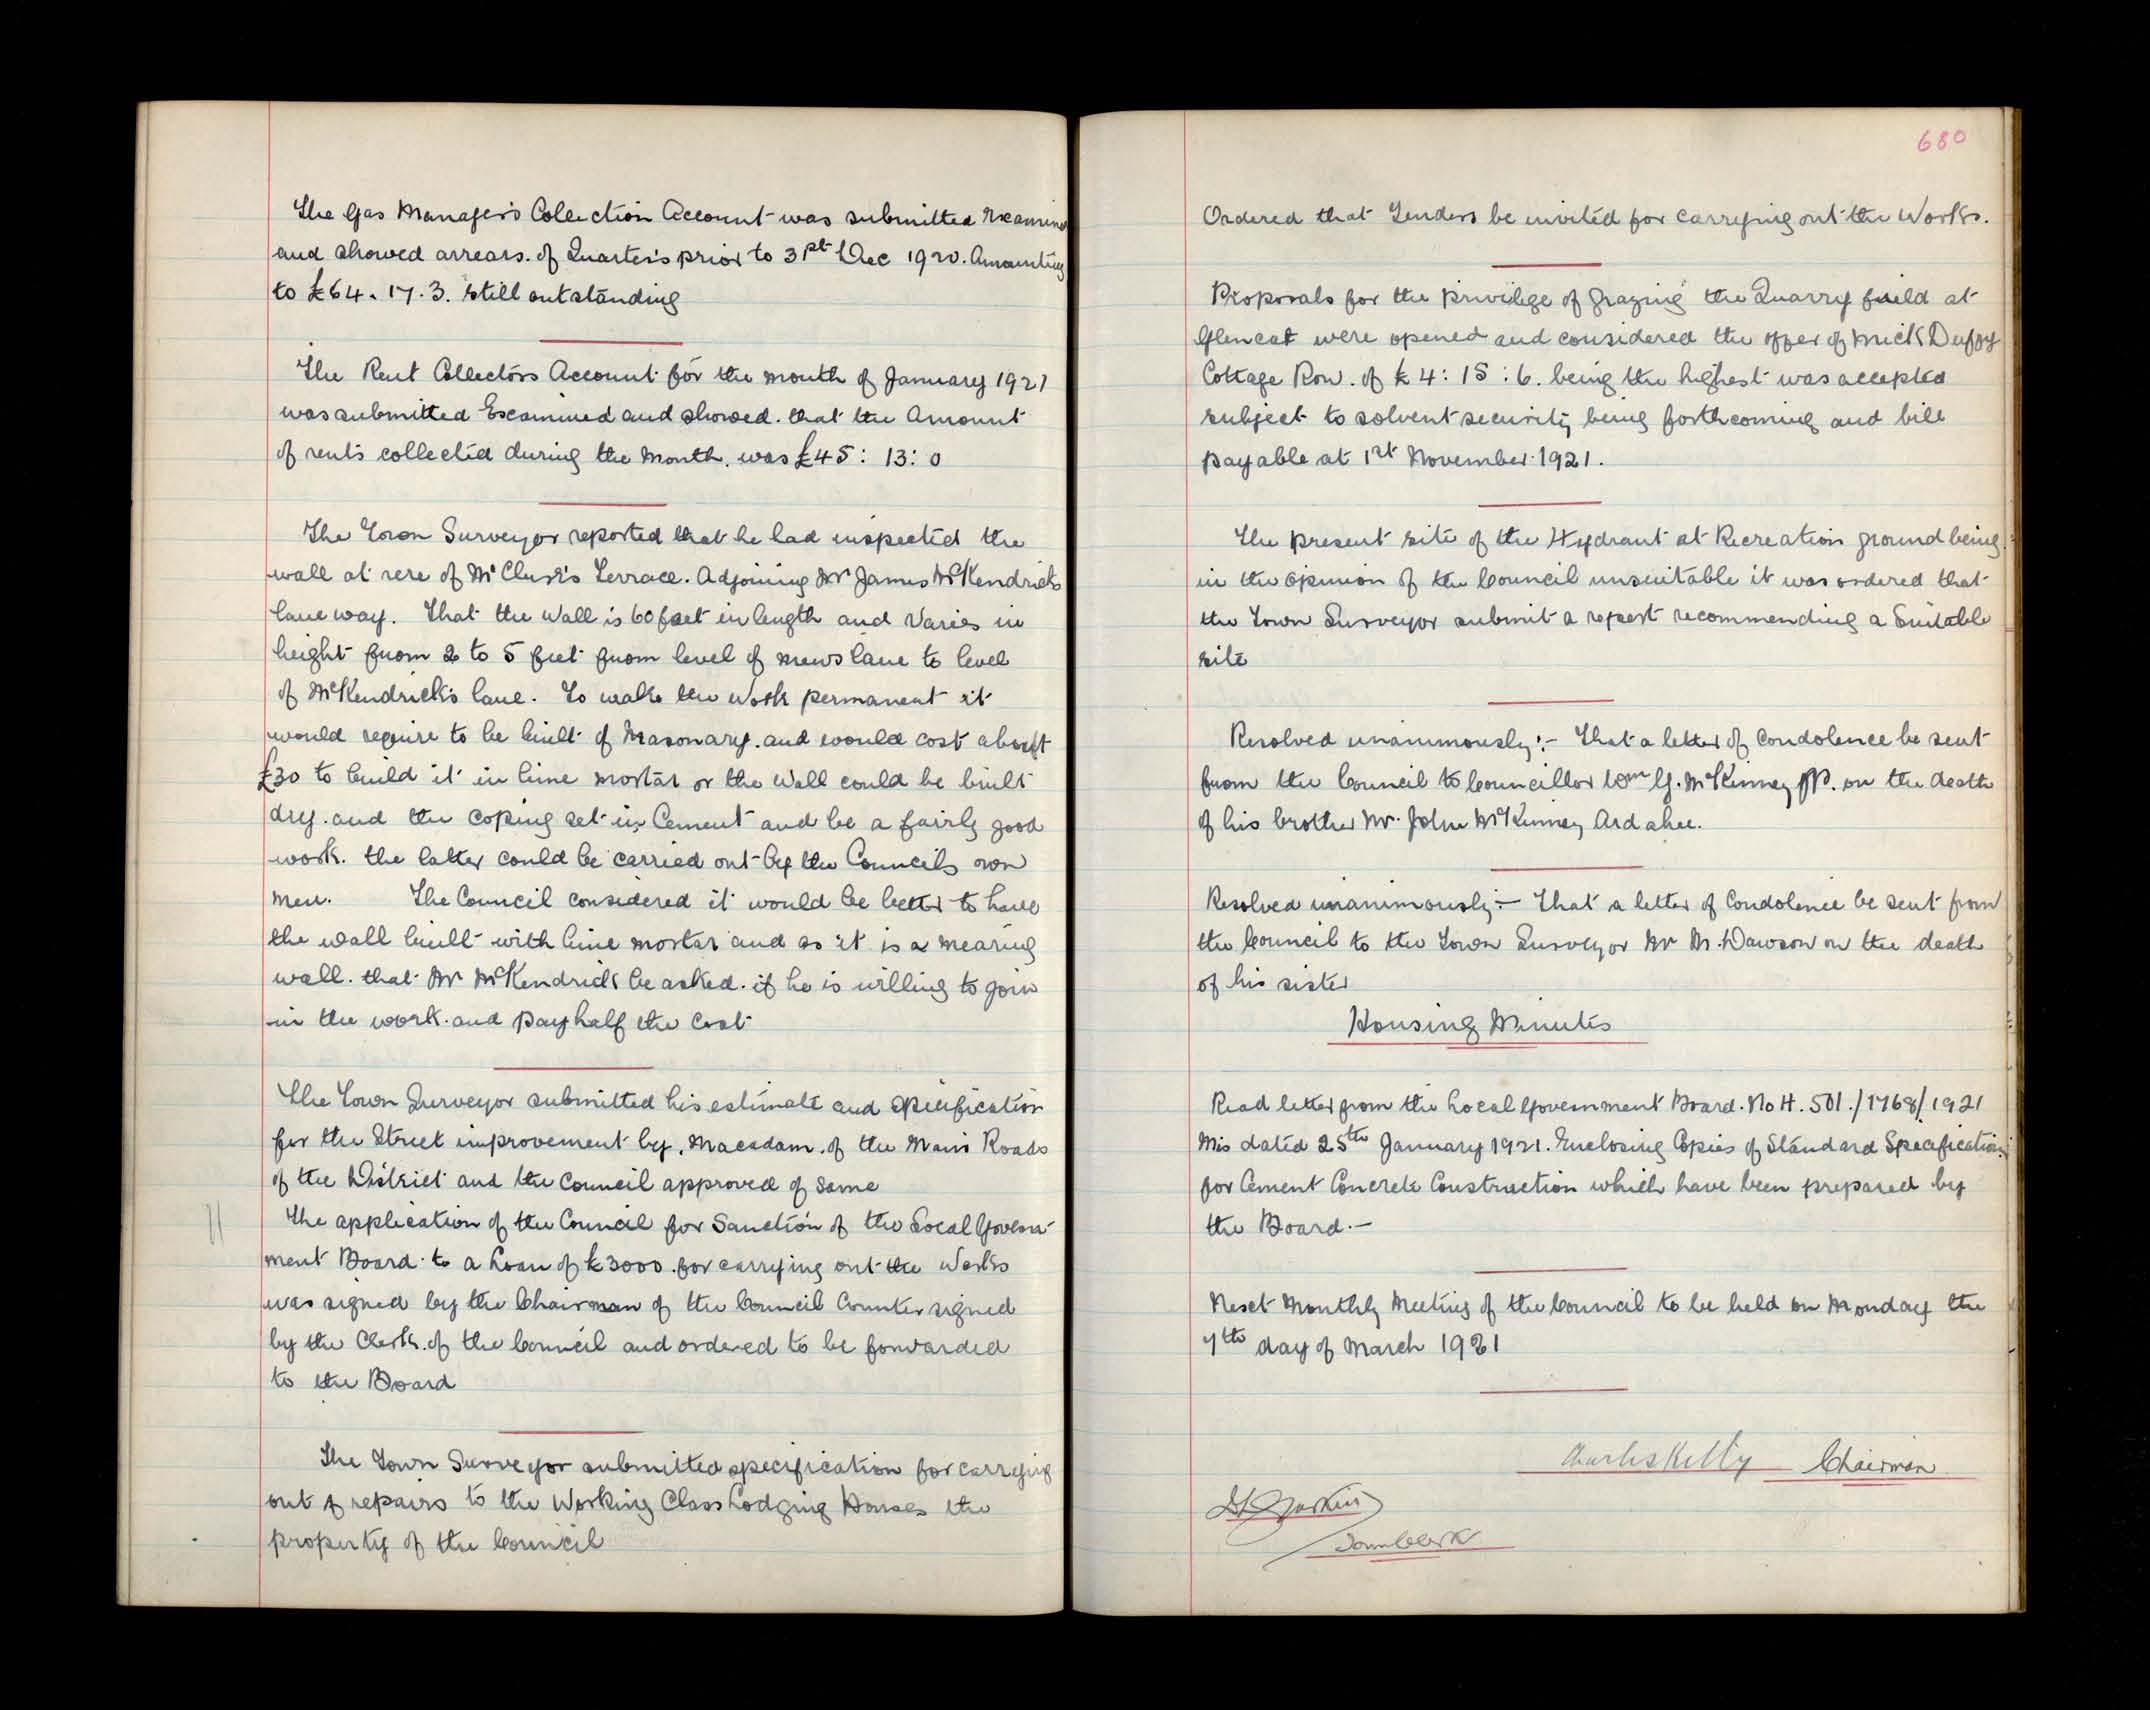 The Gas Manager's Collection Account was submitted Examined
and showed arrears. of Quarter's prior to 31st Dec 1920. Amounting
to £64. 17. 3. still outstanding
The Rent Collectors Account for the month of January 1921
was submitted Examined and showed. that the Amount
of rents collected during the Month. was £45: 13: 0
The Town Surveyor reported that he had inspected the
wall at rere of McClure's Terrace. Adjoining Mr James McKendricks
lane way. That the Wall is 60 feet in length and Varies in
height from 2 to 5 feet from level of mews lane to level
of McKendrick's lane. To make the work permanent it
would require to be built of Masonary. and would cost about
£30 to build it in lime mortar or the Wall could be built
dry. and the coping set in Cement and be a fairly good
work. the latter could be carried out by the Councils own
men. The Council considered it would be better to have
the wall built with lime mortar and as it is a mearing
wall. that Mr McKendrick be asked. if he is willing to join
in the work. and pay half the Cost
The Town Surveyor submitted his estimate and specification
for the Street improvement by. Macadam. of the Main Roads
of the District and the Council approved of same
The application of the Council for Sanction of the Local Govern-
ment Board to a Loan of £3000 for carrying out the Works
was signed by the Chairman of the Council Countersigned
by the Clerk. of the Council and ordered to be forwarded
to the Board
The Town Surveyor submitted specification for carrying
out of repairs to the Working Class Lodging Houses the
property of the Council
680
Ordered that Tenders be invited for carrying out the Works.
Proposals for the privilege of grazing the Quarry field at
Glencat were opened and considered the offer of Mick Duffy
Cottage Row. of £4: 15: 6. being the highest was accepted
subject to solvent security being forthcoming and bill
payable at 1st November 1921.
The present site of the Hydrant at Recreation ground being
in the opinion of the Council unsuitable it was ordered that
the Town Surveyor submit a report recommending a Suitable
site
Resolved unanimously:- That a letter of Condolence be sent
from the Council to Councillor Wm G. McKinney JP. on the death
of his brother Mr. John McKinney Ardahee.
Resolved unanimously:- That a letter of Condolence be sent from
the Council to the Town Surveyor Mr M. Dawson on the death
of his sister
Housing Minutes
Read letter from the Local Government Board. No H. 501./1768/1921
Mis dated 25th January 1921. Enclosing Copies of Standard Specification
for Cement Concrete Construction which have been prepared by
the Board.-
Next Monthly Meeting of the Council to be held on Monday the
7th day of March 1921
Charles Kelly Chairman
Town Clerk